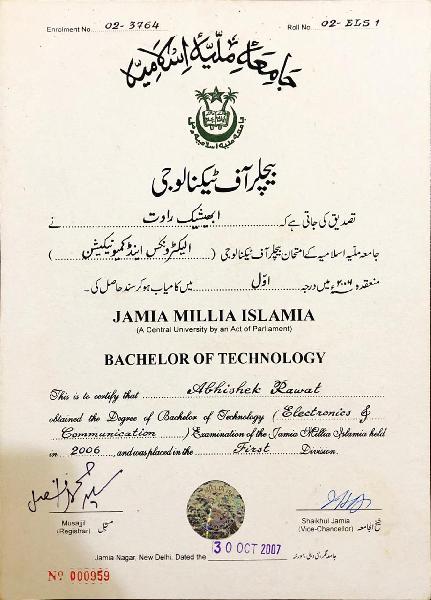 Enrolment No. 02-3764 Roll No 02-ELS1
جامعہ ملیہ اسلامیہ
بیچلر آف ٹیکنالوجی
تصدیق کی جاتی ہے کہ ابھیشیک راوت نے
جامعہ ملیہ اسلامیہ کے امتحان بیچلر آف ٹیکنالوجی (الیکٹرونکس اینڈ کمیونیکیشن)
منعقدہ ۲۰۰۶ء میں درجہ اوّل میں کامیاب ہو کر سند حاصل کی۔
JAMIA MILLIA ISLAMIA
(A Central University by an Act of Parliament)
BACHELOR OF TECHNOLOGY
This is to certify that Abhishek Rawat
obtained the Degree of Bachelor of Technology (Electronics &
Communication) Examination of the Jamia Millia Islamia held
in 2006 and was placed in the First Division.
Musajjil
(Registrar) مسجّل
Shaikhul Jamia
(Vice-Chancellor) شیخ الجامعہ
Jamia Nagar, New Delhi, Dated the 30 OCT 2007
No 000959